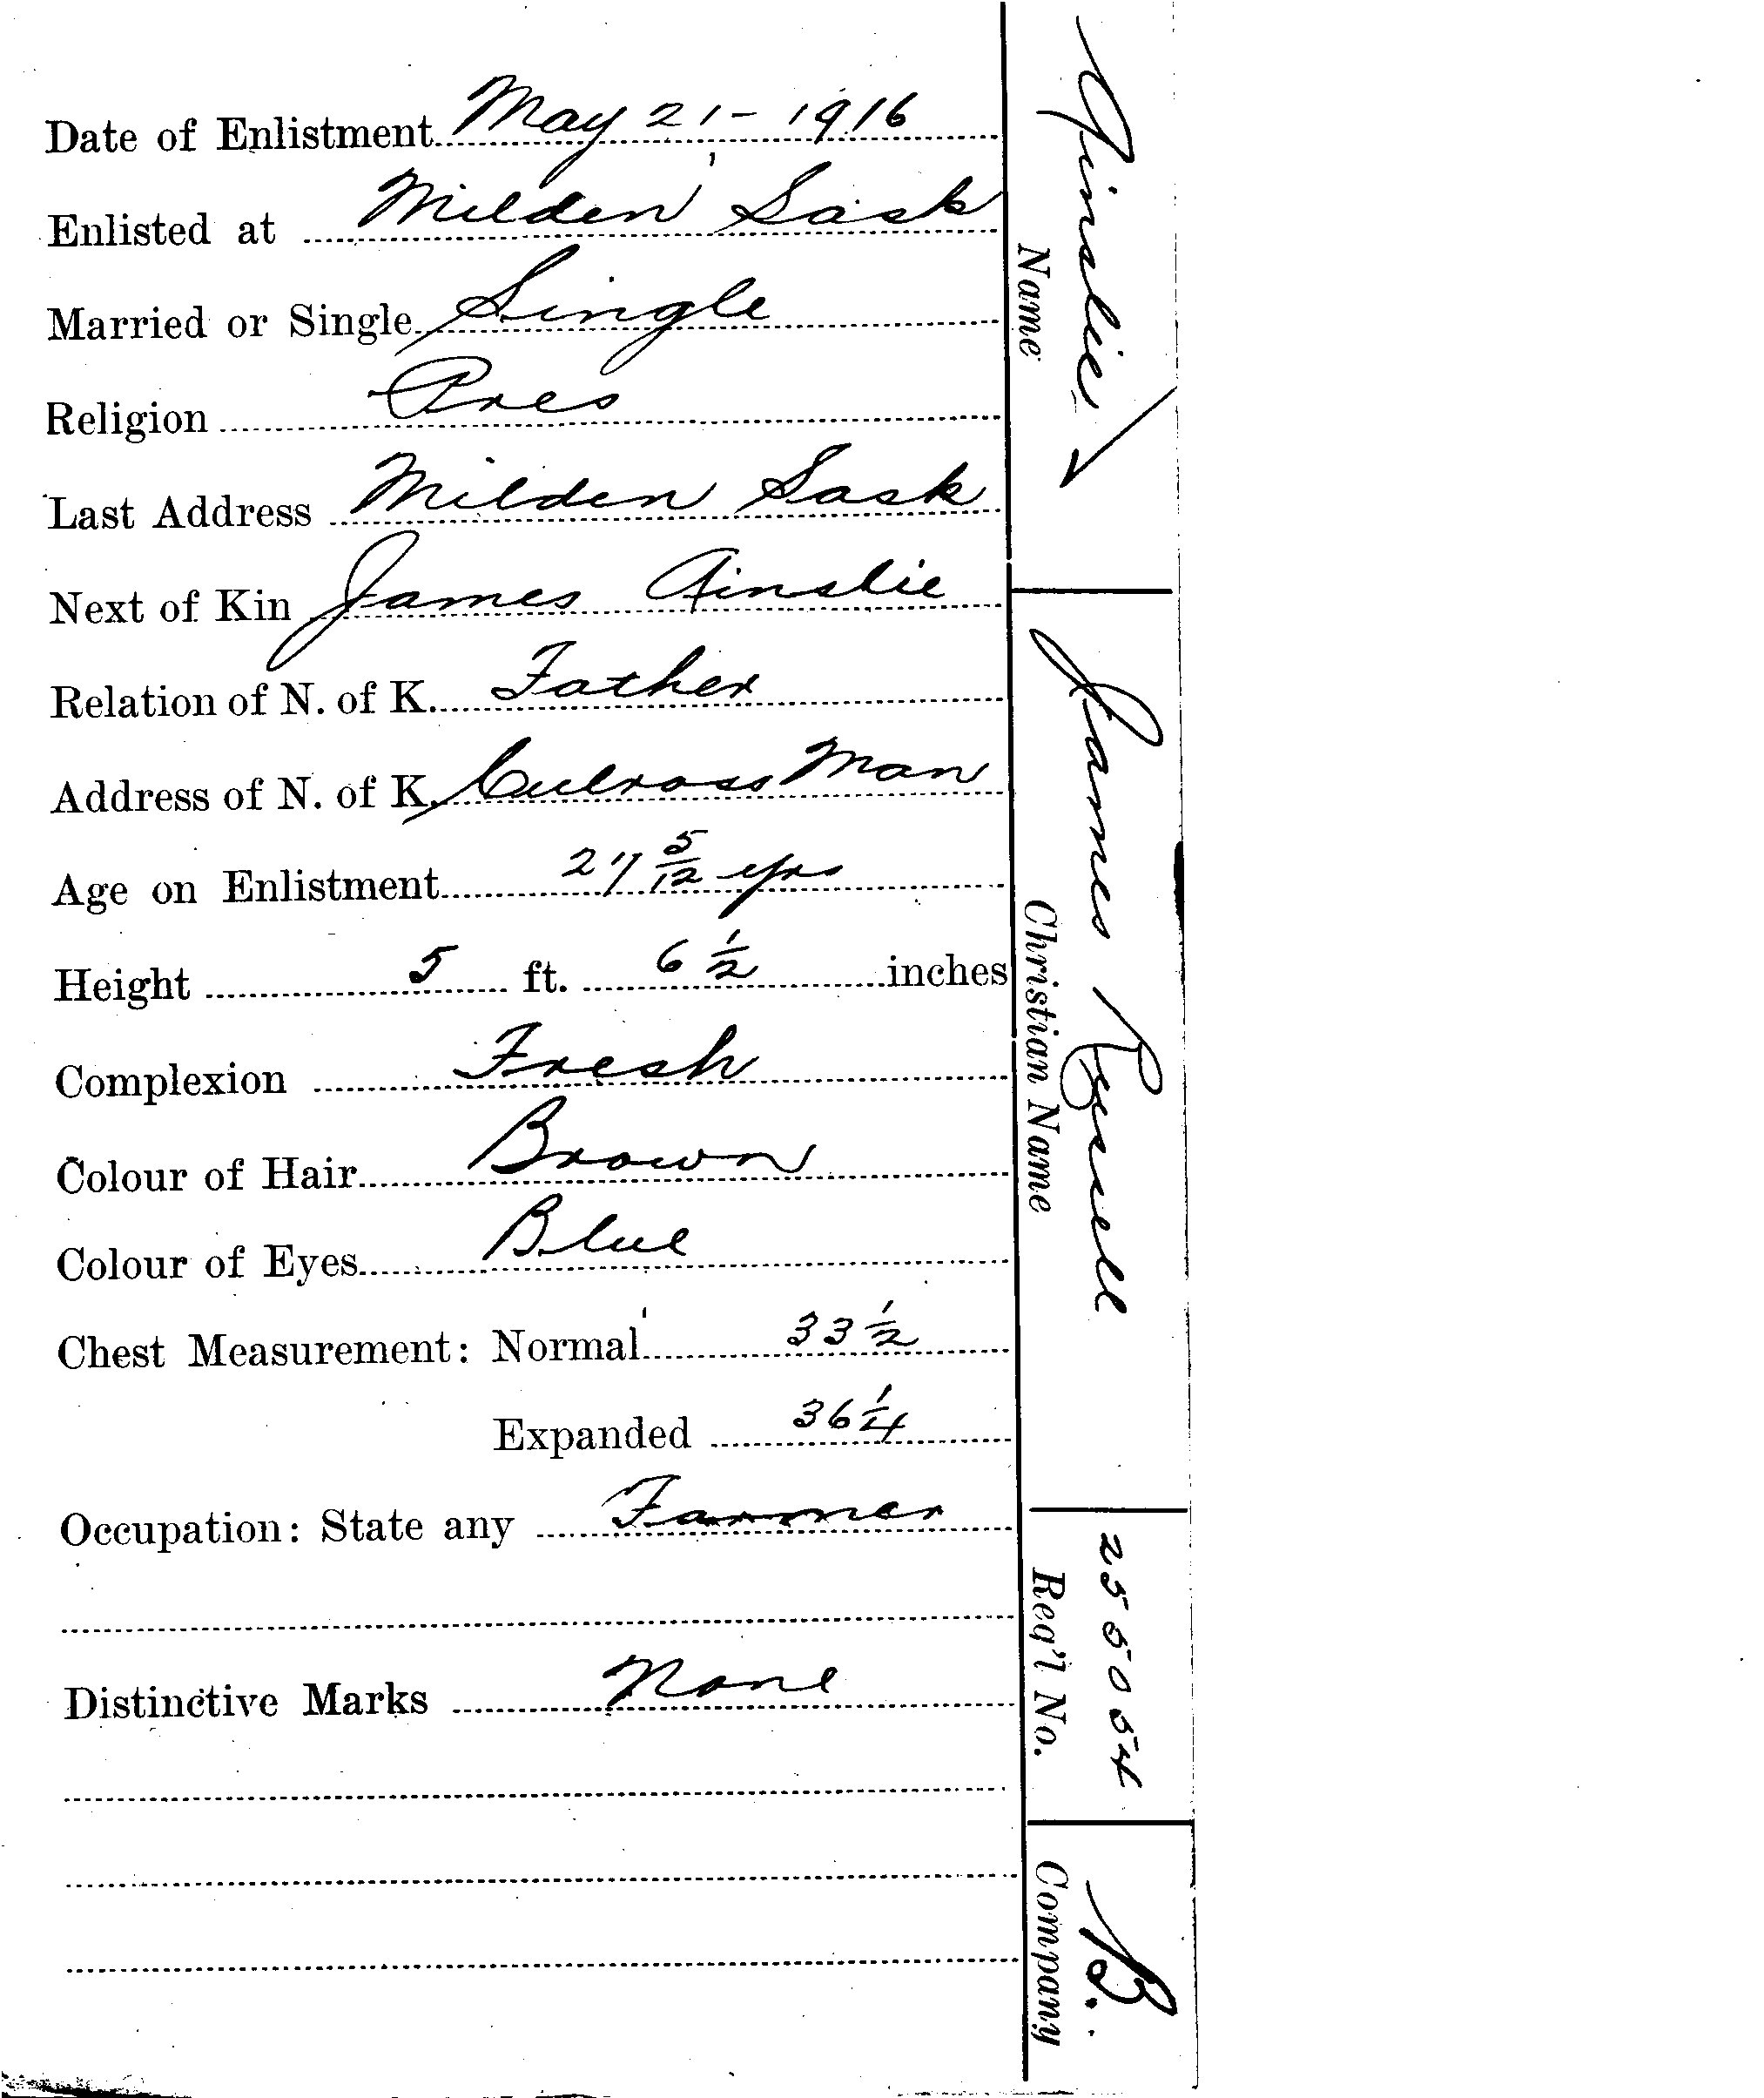 Date of Enlistment May 21 - 1916
Enlisted at Milden Sask
Married or Single Single
Religion Pres
Last Address Milden Sask
Next of Kin James Ainslie
Relation of N. of K. Father
Address of N. of K. Culross Man
Age on Enlistment 27 5/12 yrs
Height 5 ft. 6 1/2 inches
Complexion Fresh
Colour of Hair Brown
Colour of Eyes Blue
Chest Measurement: Normal 33 1/2
Expanded 36 1/4
Occupation: State any Farmer
Distinctive Marks None
Ainslie
Name
James Russell
Christian Name
255054
Reg'l No.
B.
Company